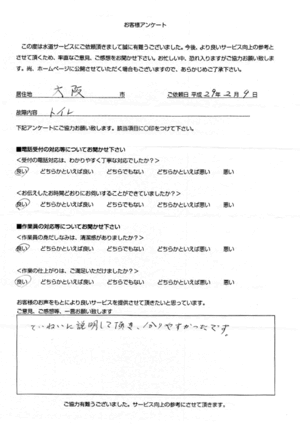 お客様アンケート
この度は水道サービスにご依頼頂きまして誠に有難うございました。今後、より良いサービス向上の参考と
させて頂くため、率直なご意見、ご感想をお聞かせ下さい。お忙しい中、恐れ入りますがご協力お願い致しま
す。尚、ホームページに公開させていただく場合もございますので、あらかじめご了承下さい。
居住地 大阪 市 ご依頼日 平成 29年 2月 9日
故障内容 トイレ
下記アンケートにご協力お願い致します。該当項目に〇印をつけて下さい。
■電話受付の対応等についてお聞かせ下さい
<受付の電話対応は、わかりやすく丁寧な対応でしたか?>
良い どちらかといえば良い どちらでもない どちらかといえば悪い 悪い
<お伝えしたお時間どおりにお伺いすることができていましたか?>
良い どちらかといえば良い どちらでもない どちらかといえば悪い 悪い
■作業員の対応等についてお聞かせ下さい
<作業員の身だしなみは、清潔感がありましたか?>
良い どちらかといえば良い どちらでもない どちらかといえば悪い 悪い
<作業の仕上がりは、ご満足いただけましたか?>
良い どちらかといえば良い どちらでもない どちらかといえば悪い 悪い
お客様のお声をもとにより良いサービスを提供させて頂きたいと思っています。
ご意見、ご感想等、一言お願い致します
ていねいに説明して頂き、わかりやすかったです。
ご協力有難うございました。サービス向上の参考にさせて頂きます。